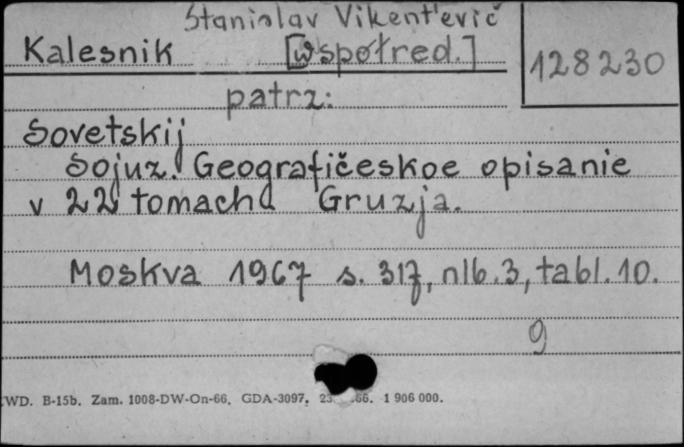 Stanislav Vikent'evič
Kalesnik [współred.]
128230
patrz:
Sovetskij
Sojuz. Geografičeskoe opisanie
v 22 tomacha Gruzja.
Moskva 1967 s. 317, nlb. 3, tabl. 10.
9
WD. B-15b. Zam. 1008-DW-On-66. GDA-3097. 23. 66. 1 906 000.